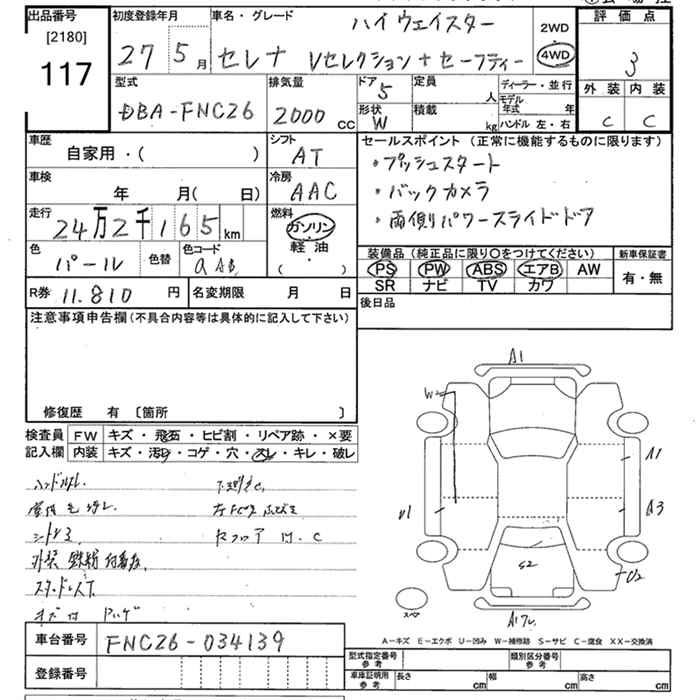 出品番号
[2180]
117
初度登録年月
27 5 月
車名・グレード
ハイウェイスター
セレナ Vセレクション+セーフティー
2WD
4WD
評価点
3
外装 内装
C C
型式
DBA-FNC26
排気量
2000 cc
ドア 5
形状 W
定員 人
積載 kg
ディーラー・並行
モデル年式 年
ハンドル 左・右
車歴
自家用・( )
シフト
AT
車検
年 月( 日)
冷房
AAC
走行
24万2千165 km
燃料
ガソリン
軽・油
( )
色
パール
色替
色コード
QAB
R券 11.810 円
名変期限 月 日
セールスポイント (正常に機能するものに限ります)
・プッシュスタート
・バックカメラ
・両側パワースライドドア
装備品 (純正品に限り○をつけてください)
PS PW ABS エアB AW
SR ナビ TV カワ
新車保証書
有・無
後日品
注意事項申告欄(不具合内容等は具体的に記入して下さい)
修復歴 有 〔箇所 〕
検査員記入欄
FW キズ・飛石・ヒビ割・リペア跡・×要
内装 キズ・汚れ・コゲ・穴・スレ・キレ・破レ
ハンドルスレ
外装 鉄粉付着有
スタッドレスT
A1
W2
A1
A3
U1
U2
S2
スペア
A-キズ E-エクボ U-凹み W-補修跡 S-サビ C-腐食 XX-交換済
車台番号
FNC26-034139
登録番号
型式指定番号 参考
類別区分番号 参考
車庫証明用 参考
長さ cm 幅 cm 高さ cm